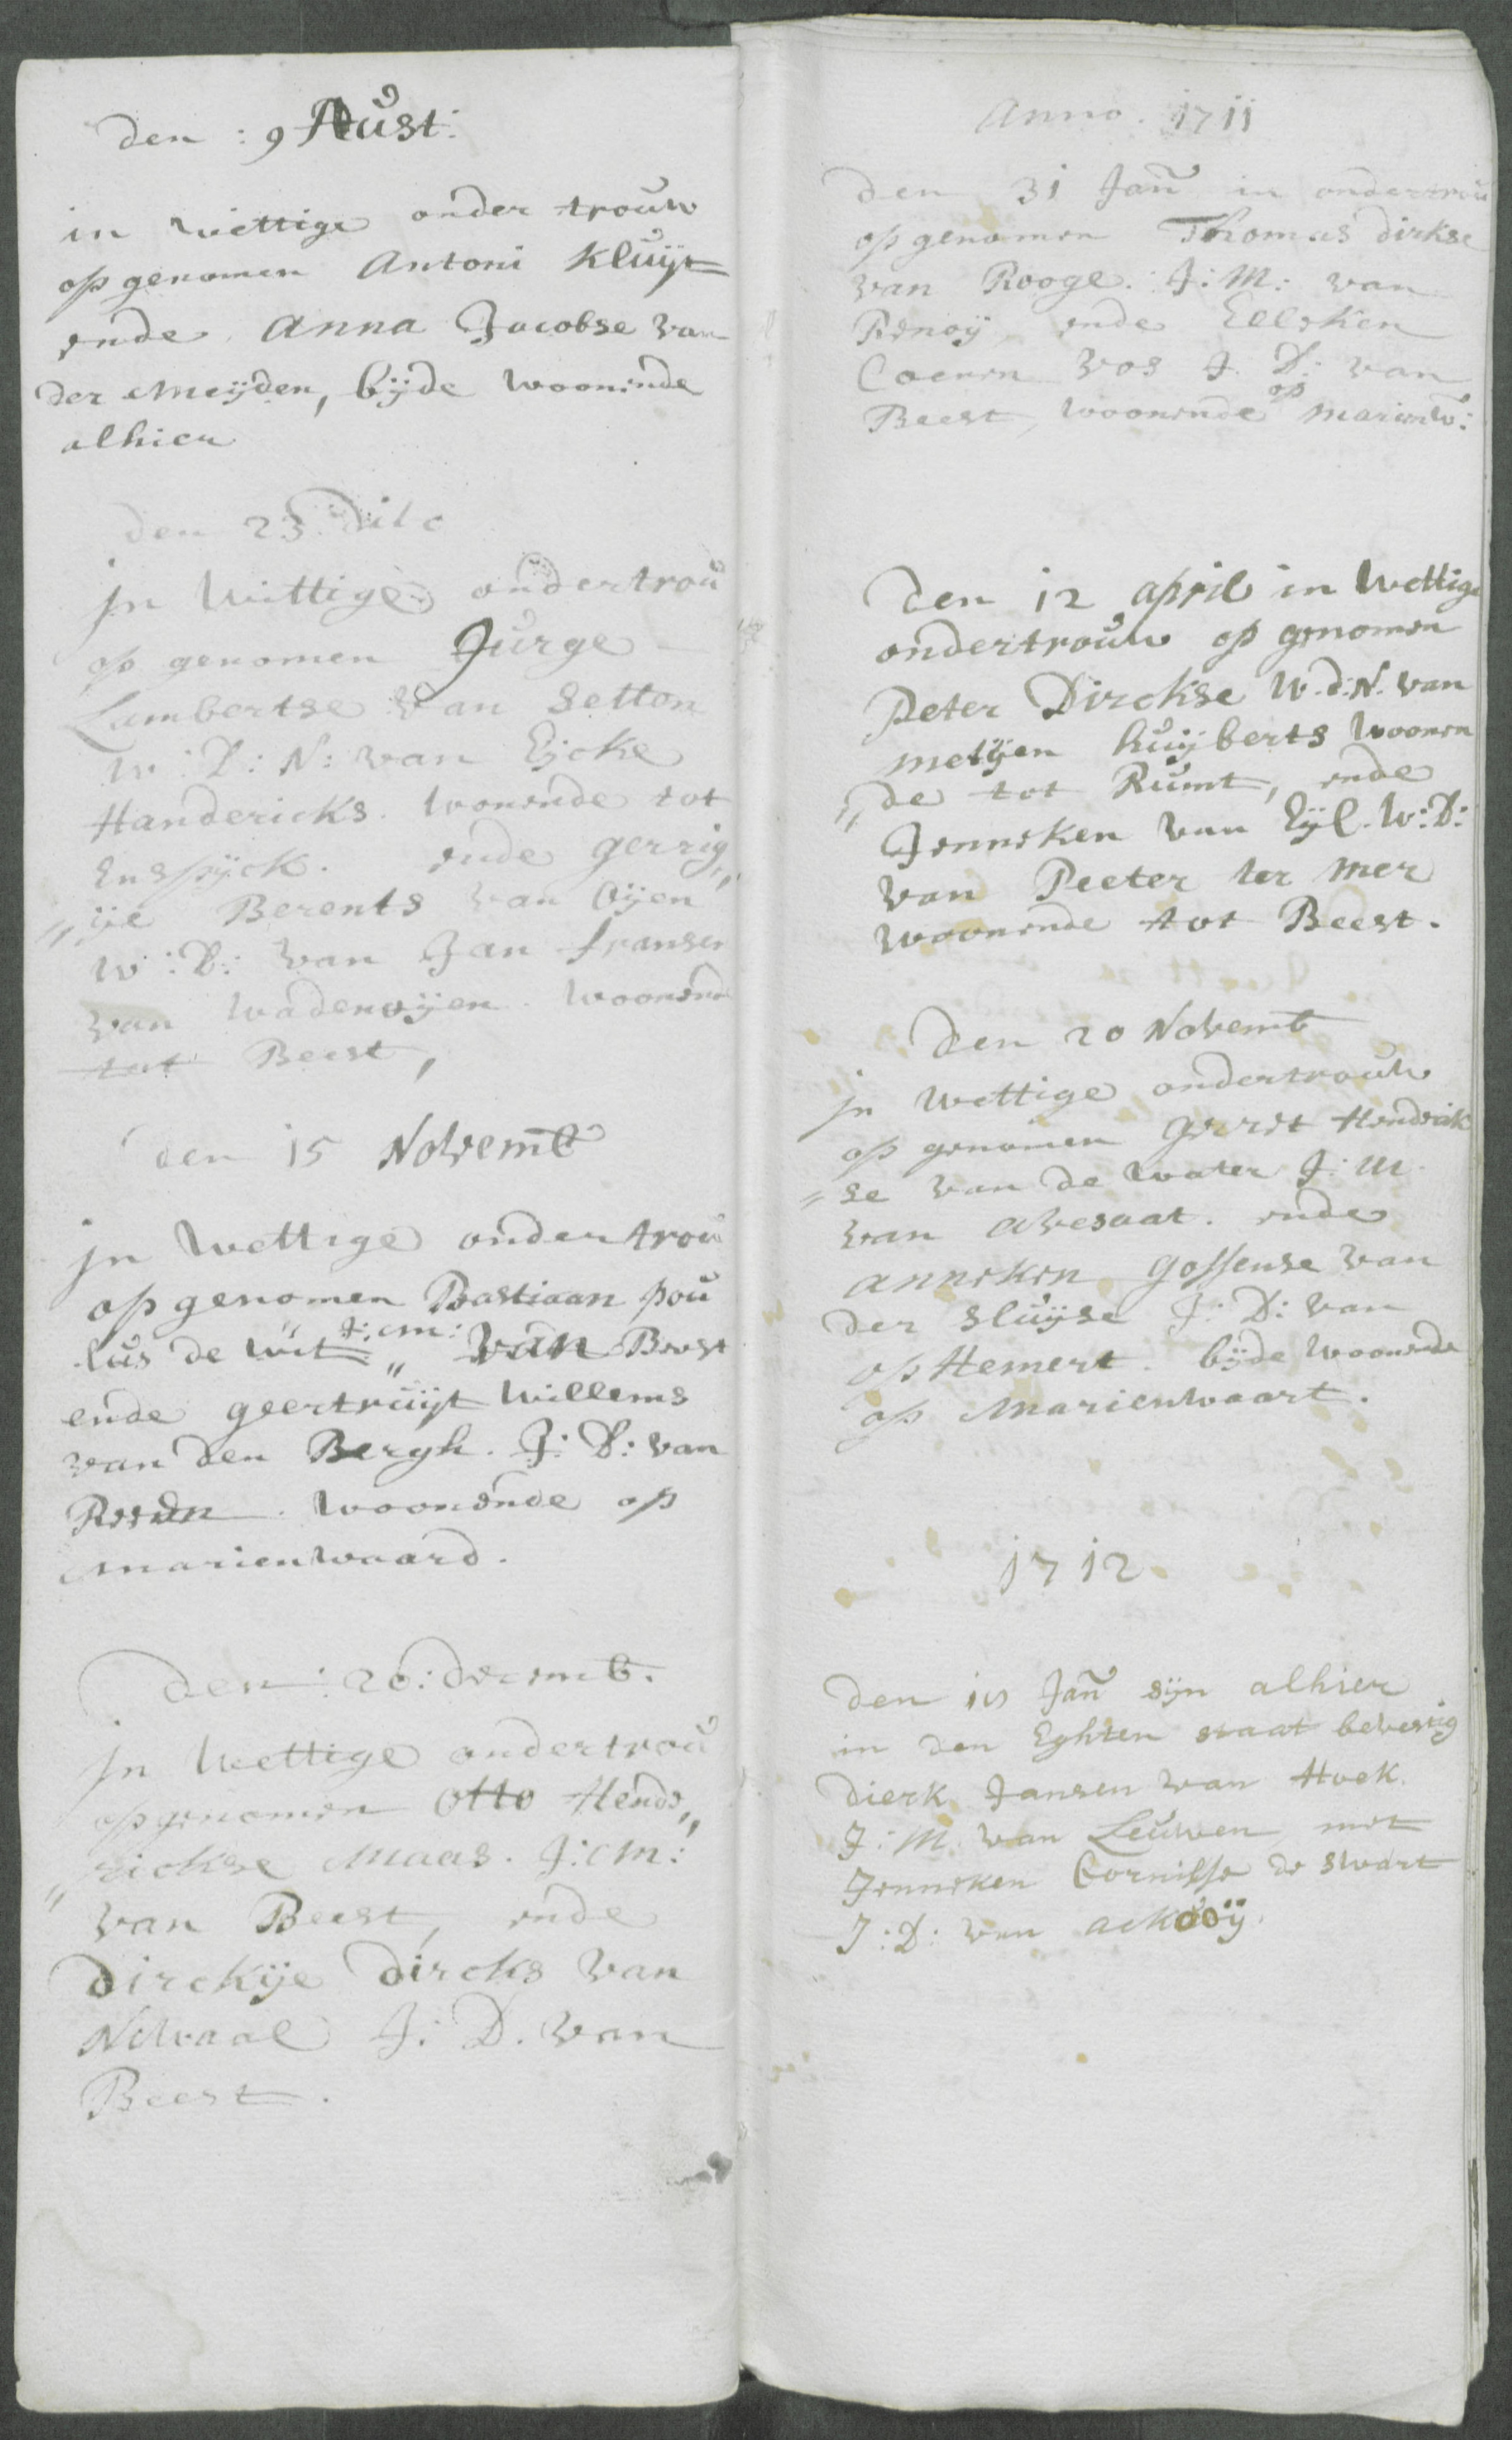 den : 9 Aust:
in wettige onder trouw
op genomen Antoni Kluijt
ende Anna Jacobse van
der Meijden, bijde woonende
alhier
den 23 dito
jn wittige ondertrou
op genomen Jurge
Lambertse van Setten
W : D : N : van Eijcke
Handericks. wonende tot
Enspijck. ende gerrig„
„ije Berents van Oijen
W : D : van Jan fransen
van wadenoijen. woonend
tot Beest,
den 15 Novemb
jn wettige ondertrou
op genomen Bastiaan pou
lus de wit J: M: van Beest
ende geertruijt willems
van den Bergh. J: D: van
woonende op
marienwaard.
den : 20 : decemb.
jn wettige ondertrou
opgenomen Otto Hend„
„rickse Maas. J: M:
van Beest, ende
dirckije dircks van
Newaal J: D. van
Beest.
Anno. 1711
den 31 Jan in ondertrou
op genomen Thomas dirkse
van Rooge. J: M: van
Renoij ende Eelsken
Coenen vos J. D: van
Beest, woonende op marienw:
den 12 april in wettige
ondertrouw op genomen
Peter Dirckse W. d: N. van
metijen huijberts woonen
„de tot Rumt, ende
Jenneken van Eijl. W: D:
van Peeter ter mer
woonende tot Beest.
den 20 Novemb
jn wettige ondertrouw
op genomen Gerret Hendrik
„se van de water J: M.
van Avesaat. ende
anneken gossense van
der Sluijse J: D: van
op Hemert. bijde woonende
op Marienwaart.
1712
den Jan sijn alhier
in den Eghten staat bevestig
dierk Jansen van Hoek.
J: M. van Leuwen met
Jenneken Cornilsse de swart
J: D: van ackooij.